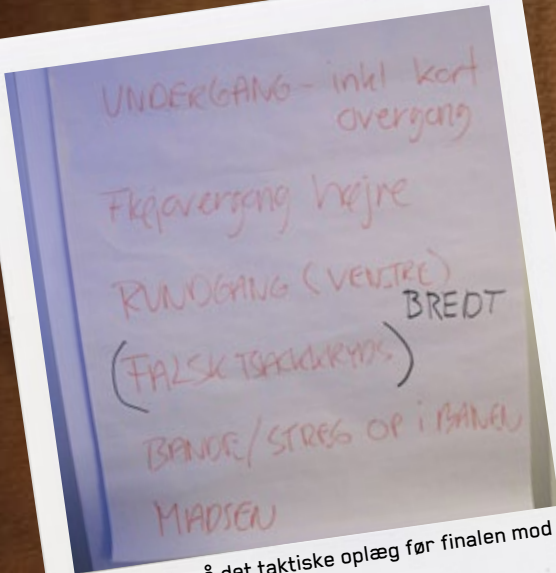 UNDERGANG - inkl kort
overgang
Fløjovergang højre
RUNDGANG (VENSTRE)
BREDT
(FALSK TSCHEKKRYDS)
BANDE/STREG OP i BANEN
MADSEN
å det taktiske oplæg før finalen mod